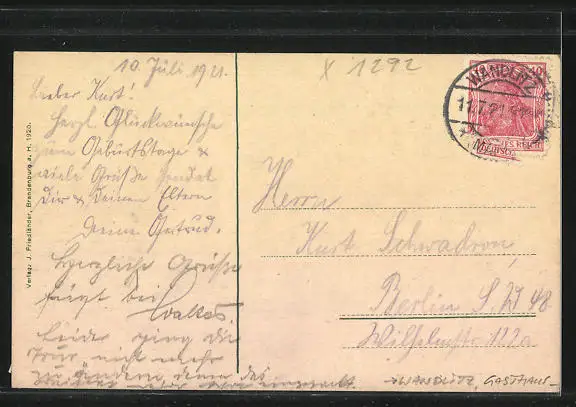 10. Juli 1921.
X 1292
Lieber Kurt!
Herzl. Glückwünsche
zum Geburtstage &
viele Grüße sendet
Dir & Deinen Eltern
Deine Gertrud.
Herzliche Grüße
fügt bei
Leider ging die
Tour nicht mehr
zu ändern, denn das
Verlag: J. Friedländer, Brandenburg a. H. 1920.
WANDLITZ
11.7.21
REICH
Herrn
Kurt Schwadron,
Berlin S.W 48
Wilhelmstr 122a
WANDLITZ, GASTHAUS